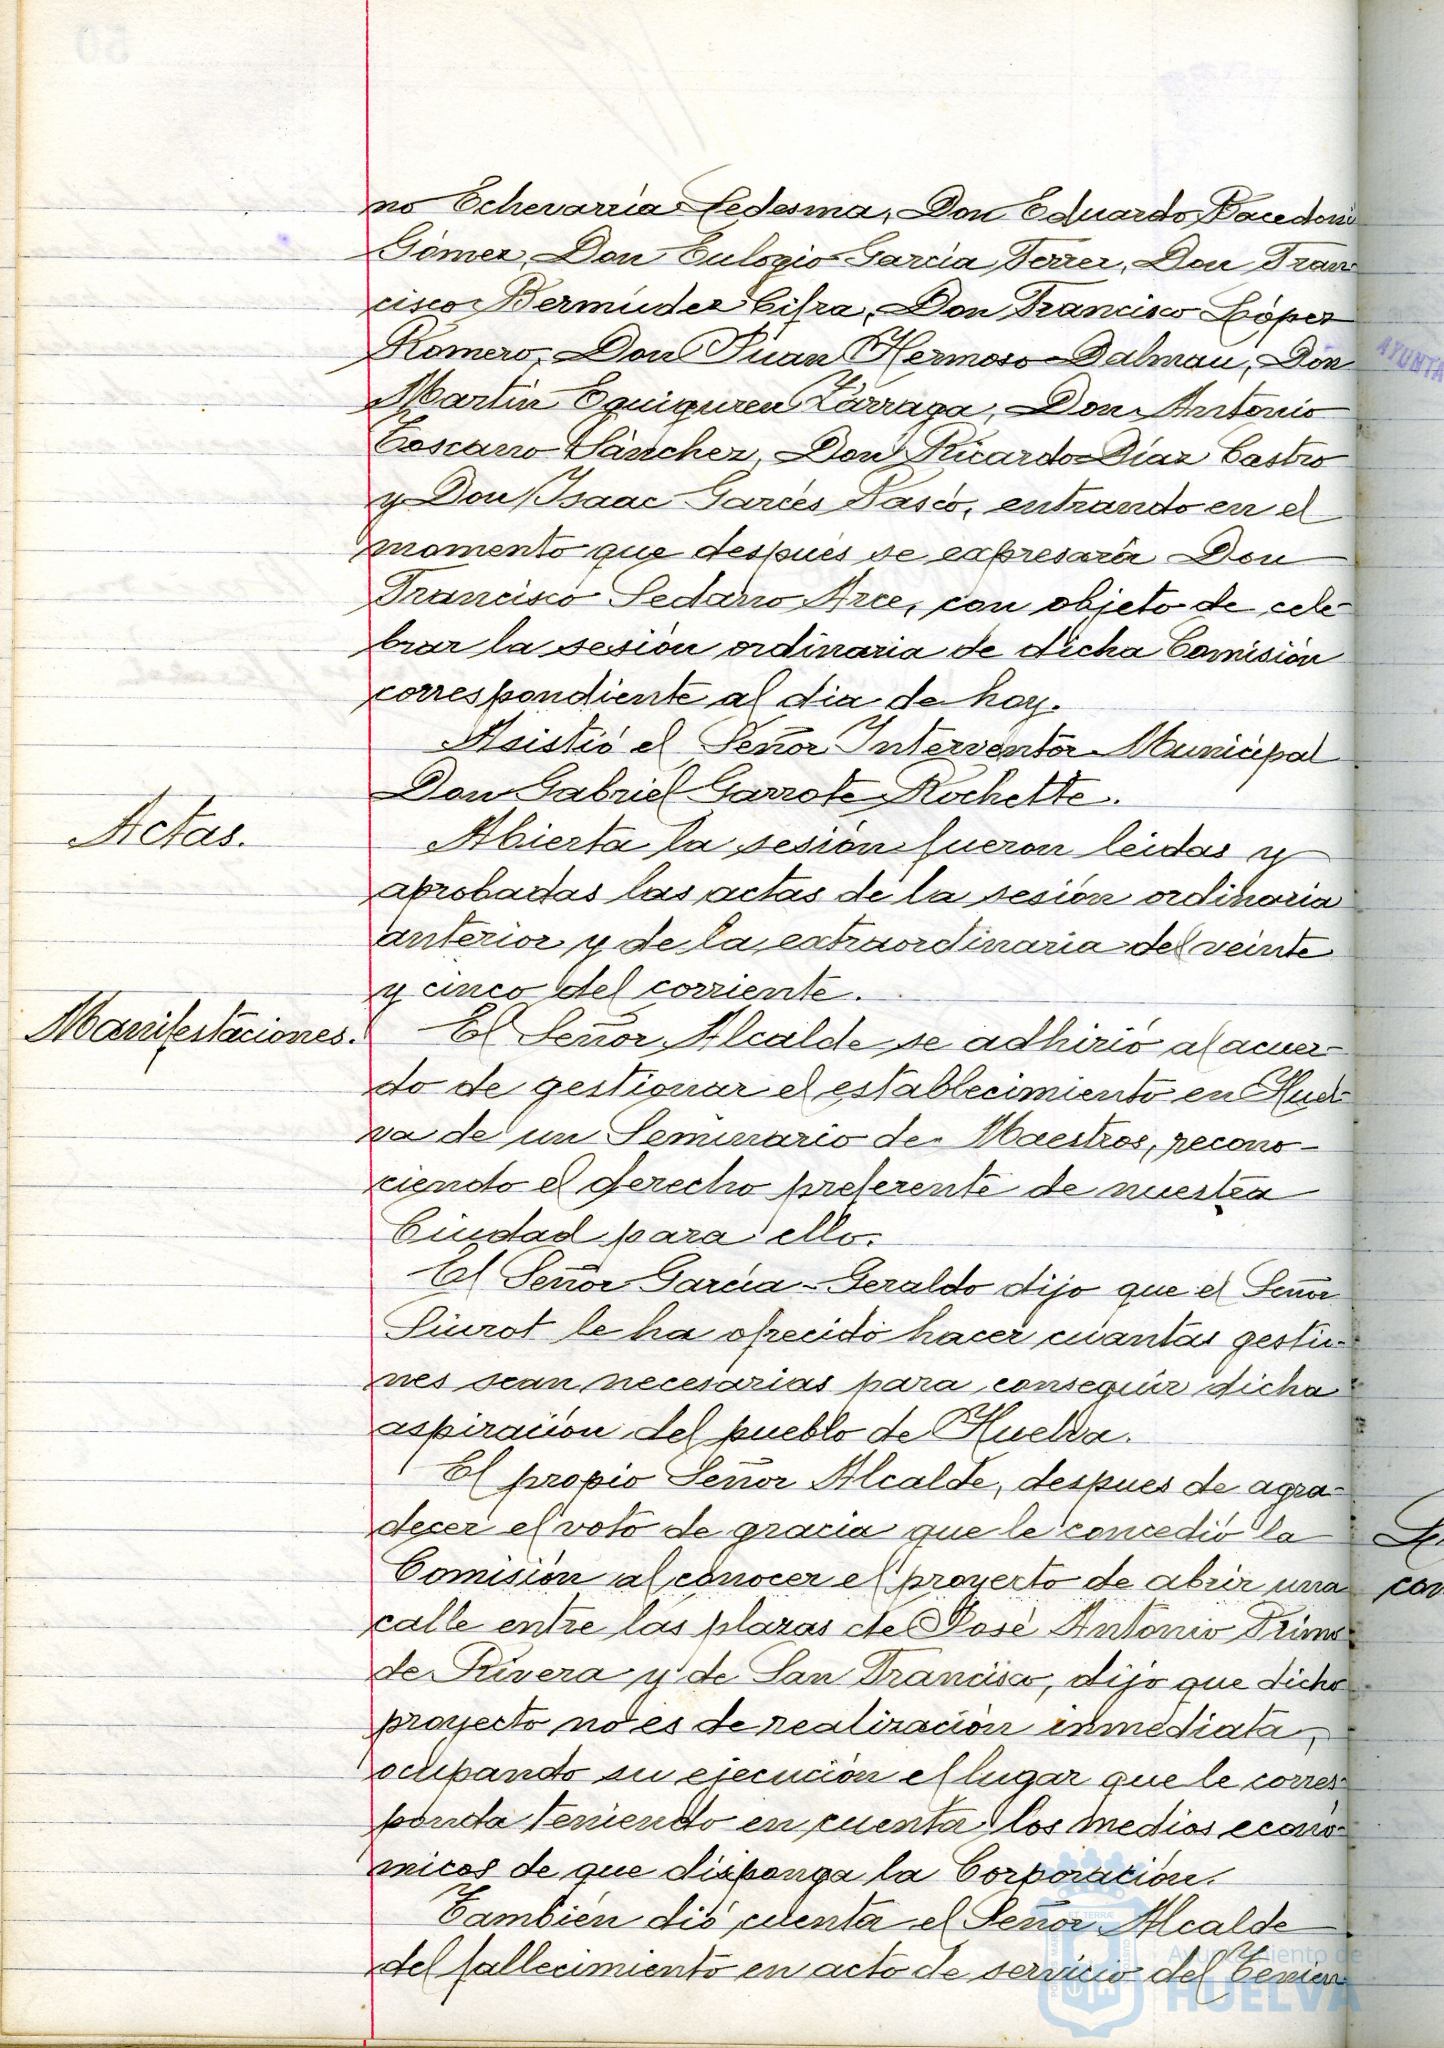 no Echevarría Ledesma, Don Eduardo
Gómez, Don Eulogio García Ferrer, Don Fran
cisco Bermúdez Cifra, Don Francisco López
Romero, Don Juan Hermoso Dalmau, Don
Martín Eguiguren Zárraga, Don Antonio
Toscano Sánchez, Don Ricardo Díaz Castro
y Don Isaac Garcés Pascó, entrando en el
momento que después se expresará Don
Francisco Sedano Arce, con objeto de cele-
brar la sesión ordinaria de dicha Comisión
correspondiente al dia de hoy.
Asistió el Señor Interventor Municipal
Don Gabriel Garrote Rochette.
Actas.
Abierta la sesión fueron leidas y
aprobadas las actas de la sesión ordinaria
anterior y de la extraordinaria del veinte
y cinco del corriente.
Manifestaciones.
El Señor Alcalde se adhirió al acuer-
do de gestionar el establecimiento en Huel-
va de un Seminario de Maestros, recono-
ciendo el derecho preferente de nuestra
Ciudad para ello.
El Señor García-Geraldo dijo que el Señor
Siurot le ha ofrecido hacer cuantas gestio-
nes sean necesarias para conseguir dicha
aspiración del pueblo de Huelva.
El propio Señor Alcalde, despues de agra-
decer el voto de gracia que le concedió la
Comisión al conocer el proyecto de abrir una
calle entre las plazas de José Antonio Primo
de Rivera y de San Francisco, dijo que dicho
proyecto no es de realización inmediata,
ocupando su ejecución el lugar que le corres-
ponda teniendo en cuenta los medios econó-
micos de que disponga la Corporación.
También dió cuenta el Señor Alcalde
del fallecimiento en acto de servicio del Tenien
AYUNTA
con
Ayuntamiento de
HUELVA